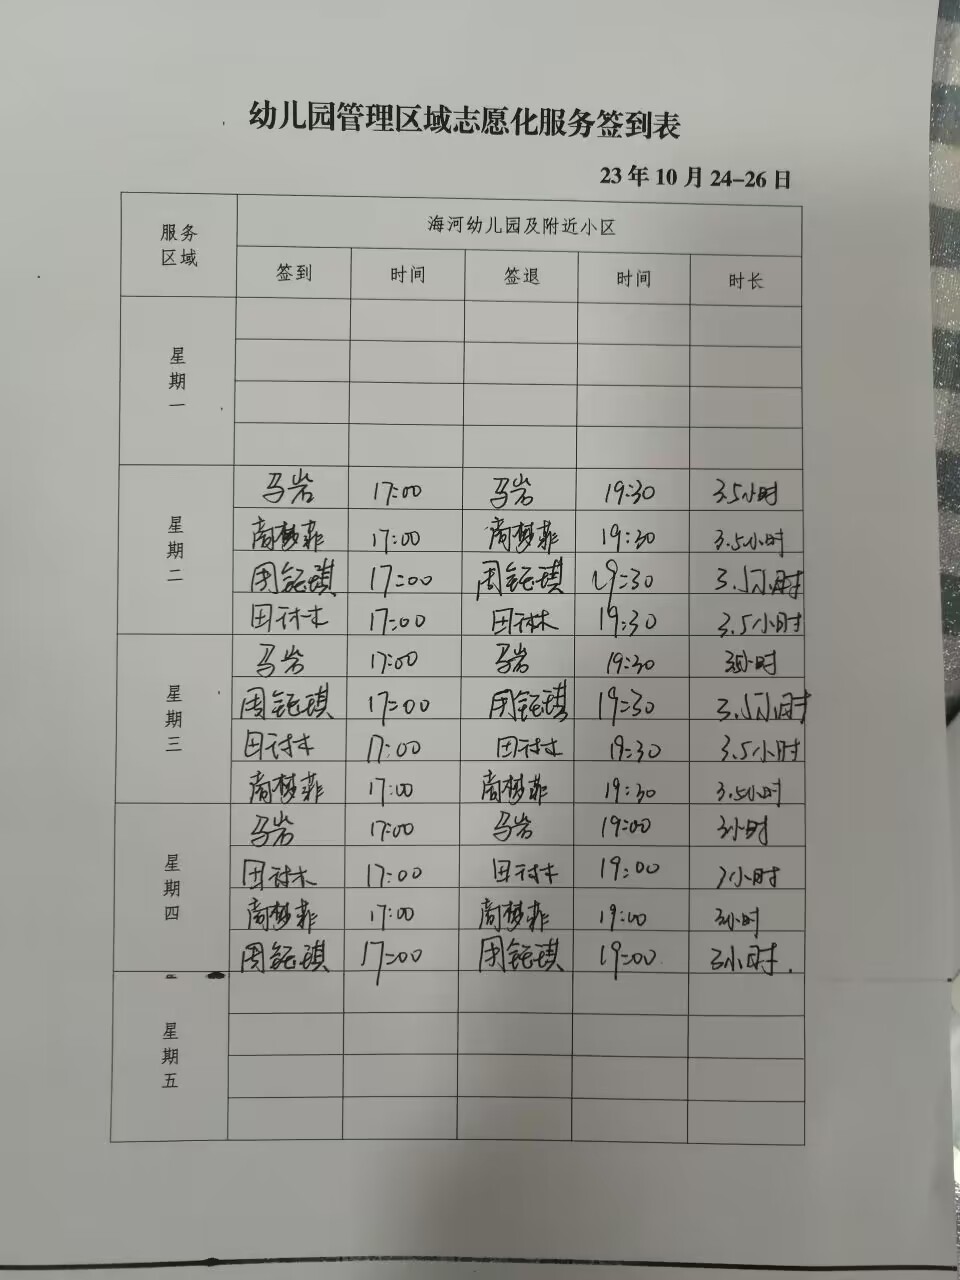 幼儿园管理区域志愿化服务签到表
23年10月24-26日
服务区域 海河幼儿园及附近小区
签到 时间 签退 时间 时长
星期一
星期二
马岩 17:00 马岩 19:30 3.5小时
周梦菲 17:00 周梦菲 19:30 3.5小时
周钰琪 17:00 周钰琪 19:30 3.5小时
田 17:00 田 19:30 3.5小时
星期三
马岩 17:00 马岩 19:30 小时
周钰琪 17:00 周钰琪 19:30 3.5小时
田 17:00 田 19:30 3.5小时
周梦菲 17:00 周梦菲 19:30 3.5小时
星期四
马岩 17:00 马岩 19:00 3小时
田 17:00 田 19:00 小时
周梦菲 17:00 周梦菲 19:00 3小时
周钰琪 17:00 周钰琪 19:00 3小时.
星期五